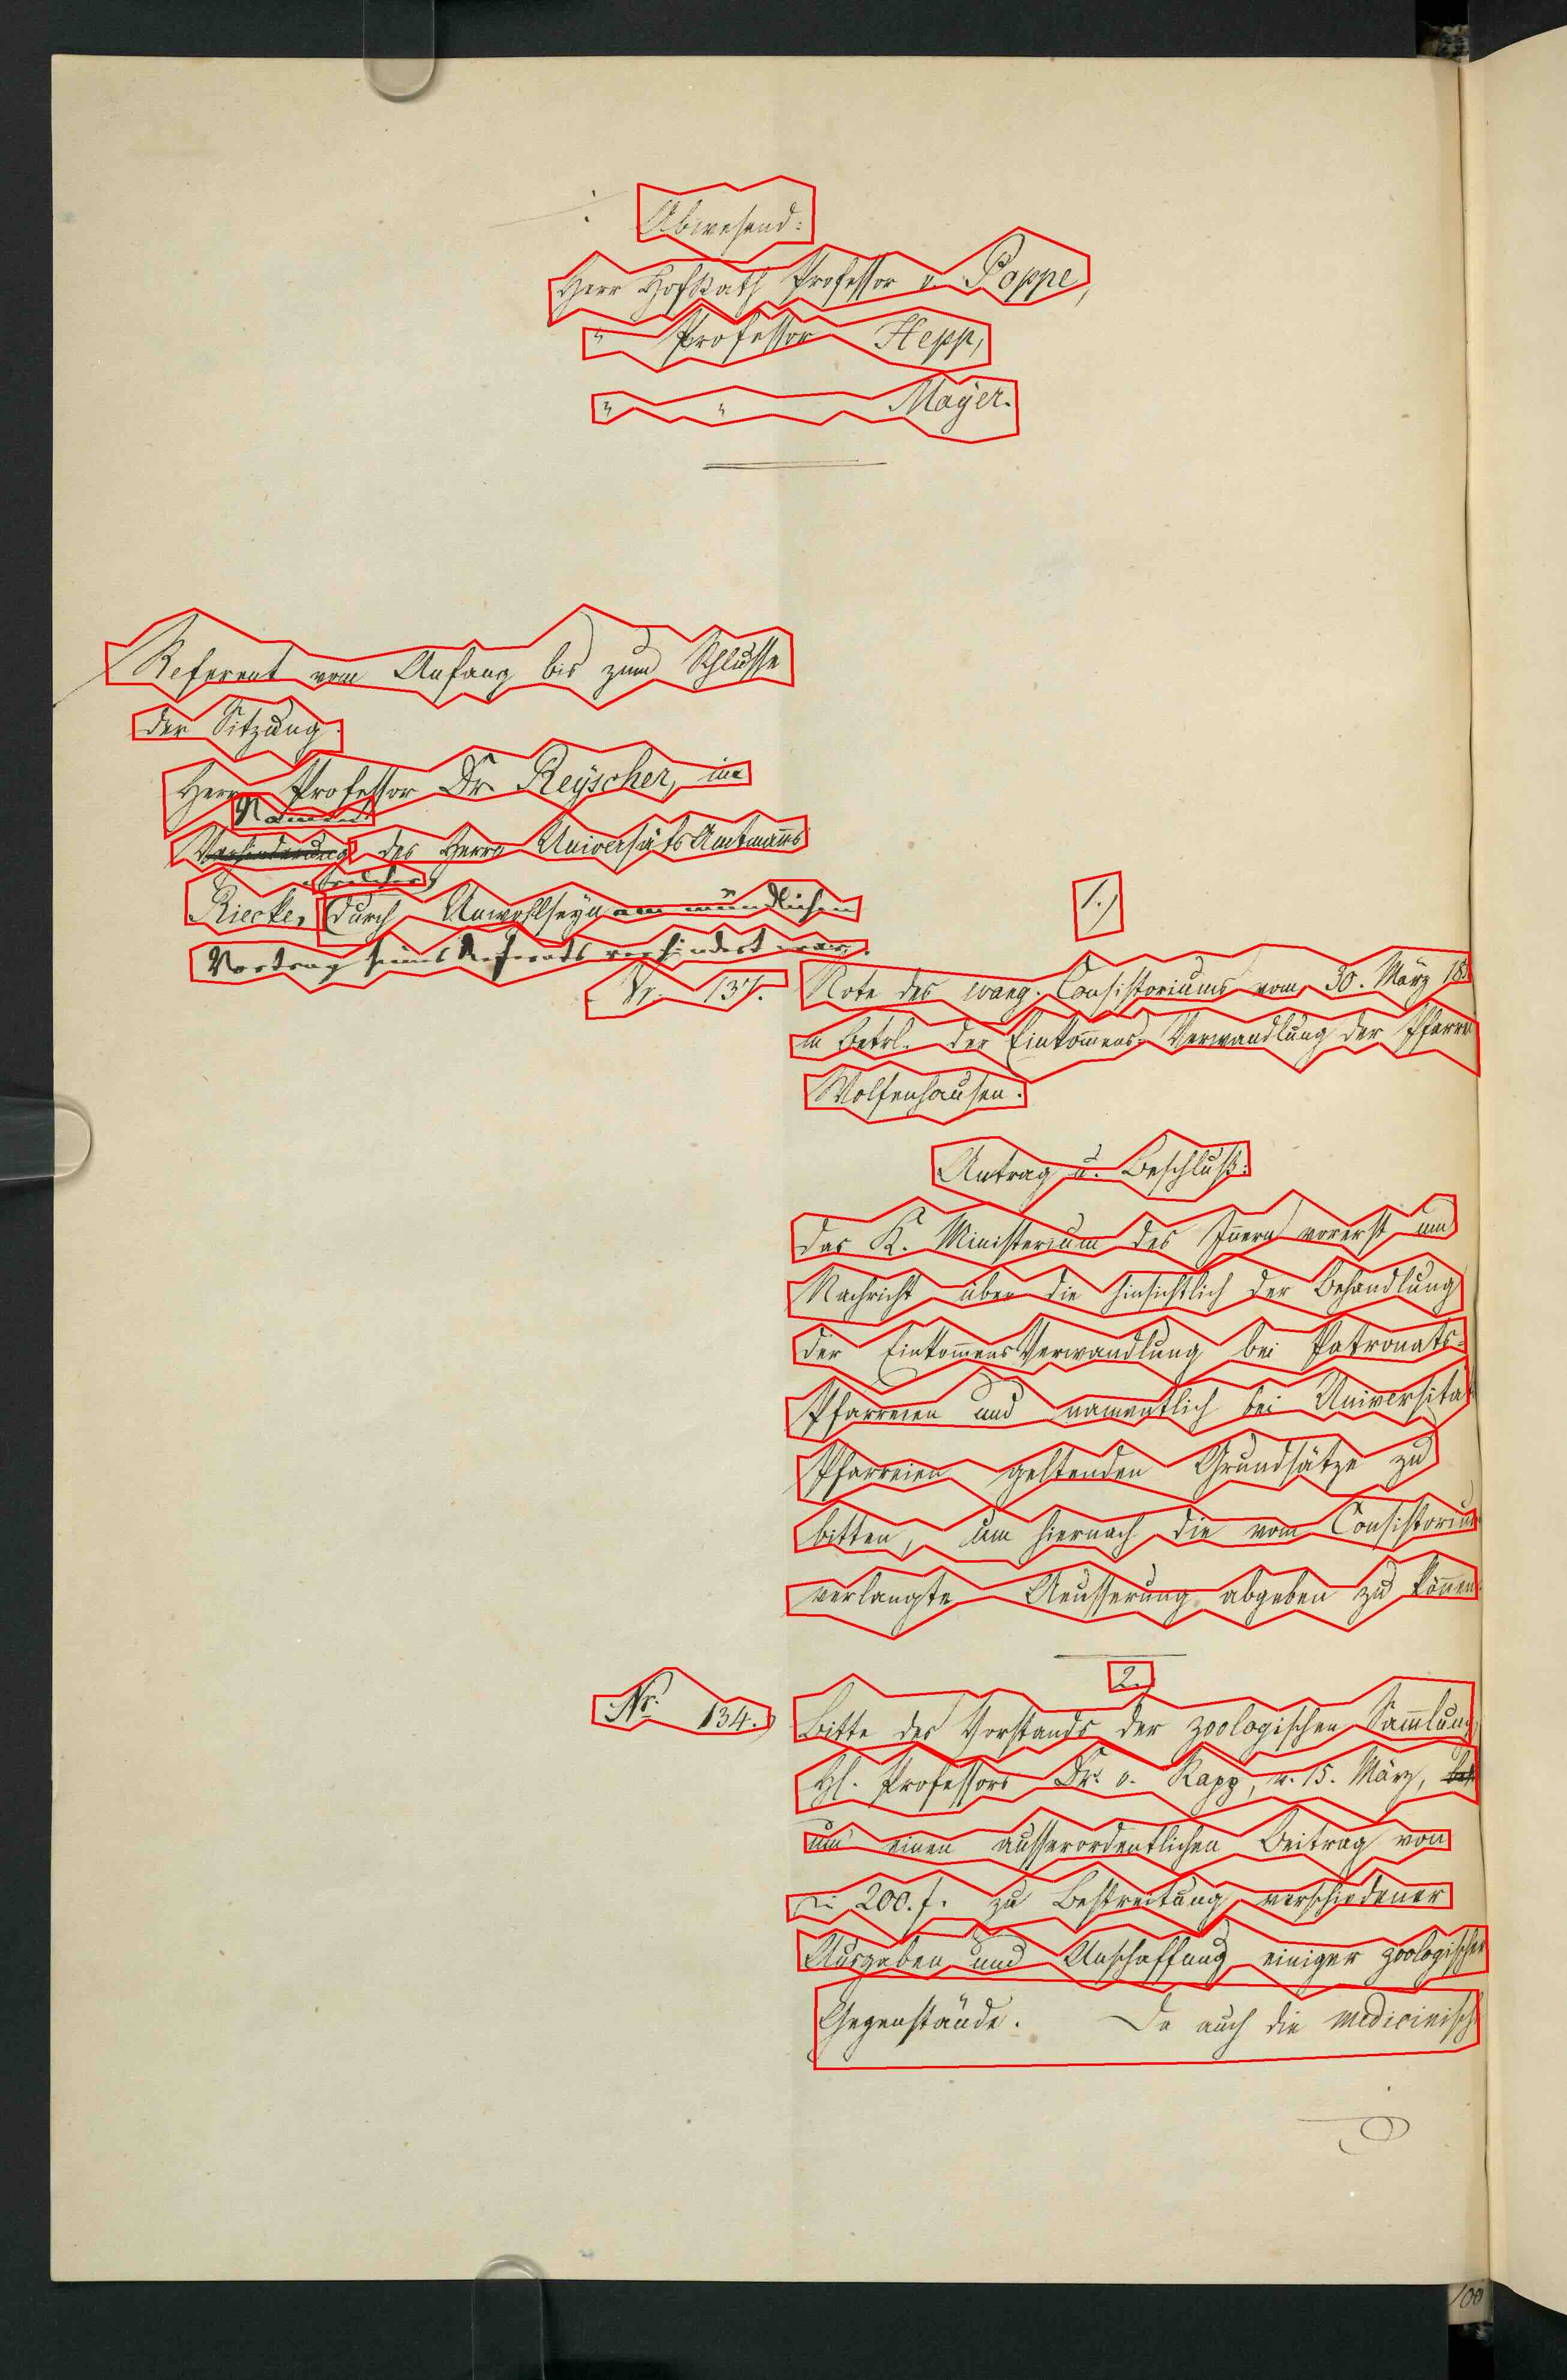 Abwesend:
Herr HofRath Professor v. Poppe,
" Professor Hepp,
" " Mayer.
Referent vom Anfang bis zum Schlusse
der Sitzung.
Herr Professor Dr. Reyscher, im
Namens
Verhinderung des Herrn UniversitätsAmtmanns
welcher
Riecke, durch Unwohlseyn am mündlichen
Vortrag seines Referats verhindert war.
1.)
Nr. 137.
Note des evang. Consistoriums vom 30. März 18
in betrl. der Einkom̄ens-Verwandlung der Pfarre
Wolfenhausen.
Antrag u. Beschluß:
das K. Ministerium des In̄ern vorerst um
Nachricht über die hinsichtlich der Behandlung
der Einkom̄ensVerwandlung bei Patronats-
Pfarreien und namentlich bei Universitäts
Pfarreien geltenden Grundsätze zu
bitten, um hiernach die vom Consistorium
verlangte Aeusserung abgeben zu kön̄en.
2.
Nr. 134.
Bitte des Vorstands der zoologischen Sam̄lung,
H. Professors Dr. v. Rapp, v. 15. März,
um einen ausserordentlichen Beitrag von
200. f. zu Bestreitung verschiedener
Ausgaben und Anschaffung einiger zoologischer
Gegenstände. Da auch die medicinisch
100